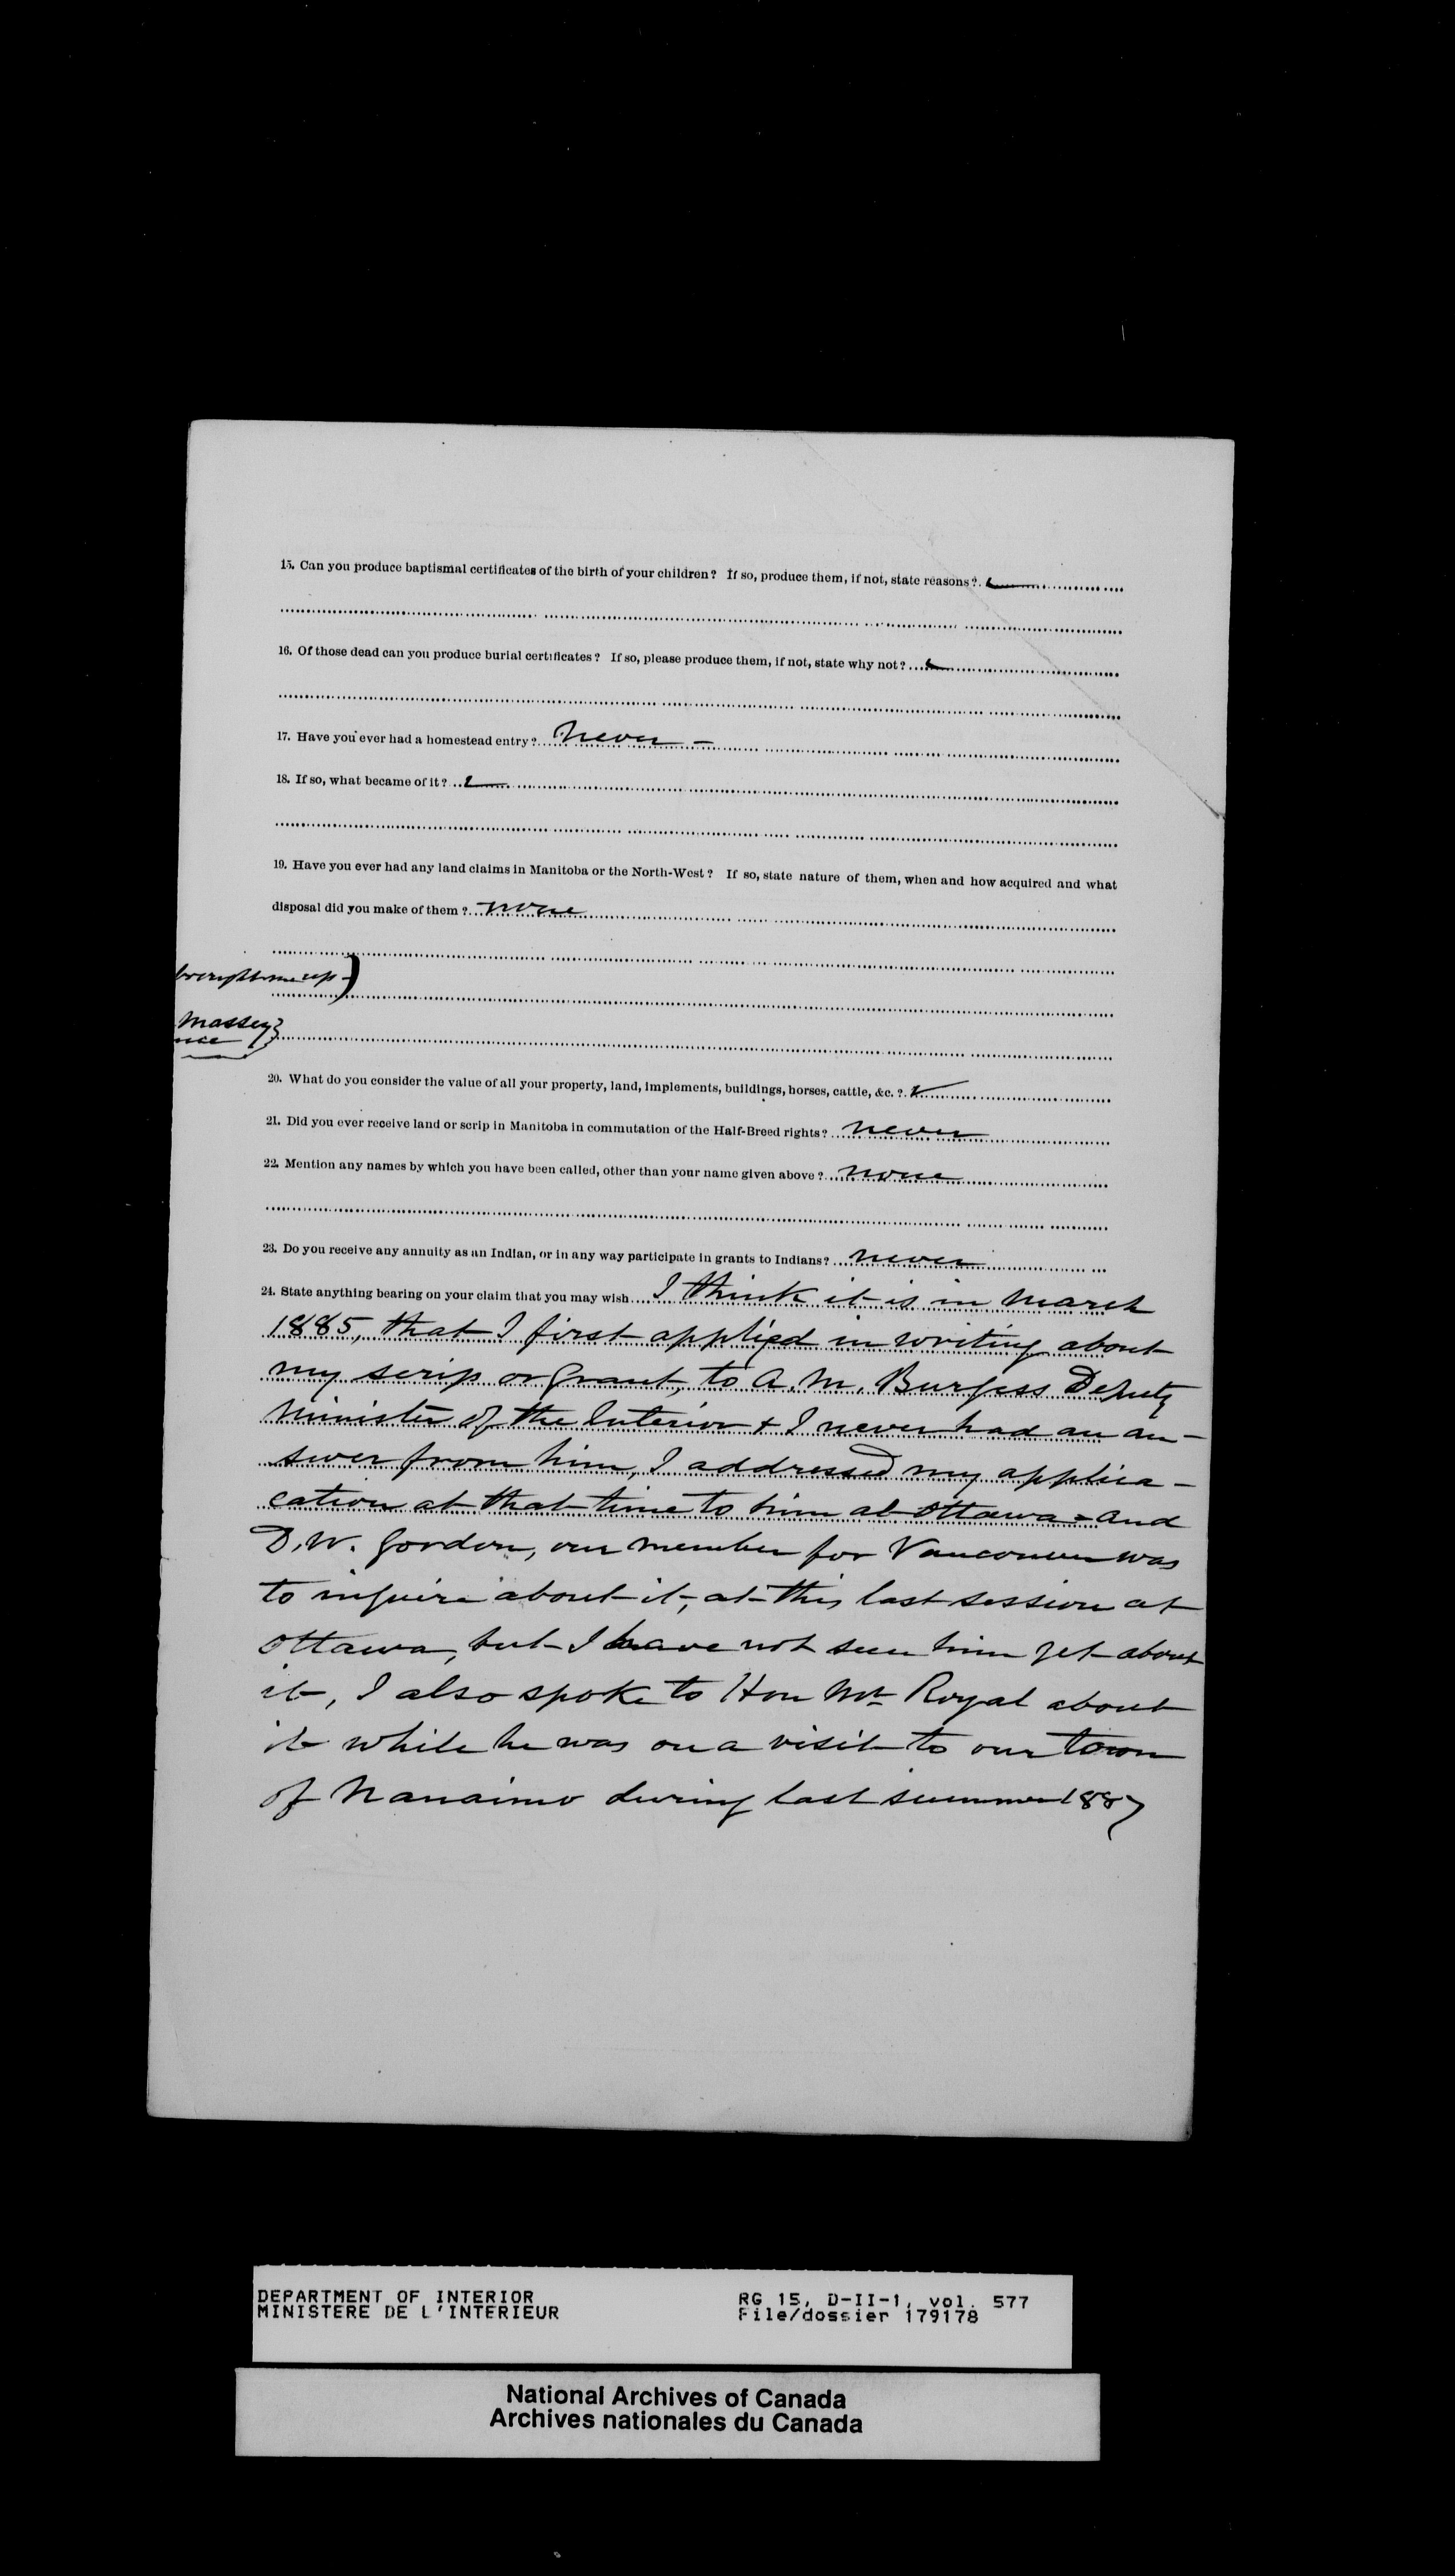 15. Can you produce baptismal certificates of the birth of your children? If so, produce them, if not, state reasons?
16. Of those dead can you produce burial certificates? If so, please produce them, if not, state why not?
17. Have you ever had a homestead entry? Never –
18. If so, what became of it?
19. Have you ever had any land claims in Manitoba or the North-West? If so, state nature of them, when and how acquired and what
disposal did you make of them? none
brought me up –)
Massey }
20. What do you consider the value of all your property, land, implements, buildings, horses, cattle, &c.?
21. Did you ever receive land or scrip in Manitoba in commutation of the Half-Breed rights? never
22. Mention any names by which you have been called, other than your name given above? none
23. Do you receive any annuity as an Indian, or in any way participate in grants to Indians? never
24. State anything bearing on your claim that you may wish I think it is in March
1885, that I first applied in writing about
my scrip or Grant, to A. M. Burgess Deputy
Minister of the Interior + I never had an an-
swer from him, I addressed my applica-
cation at that time to him at Ottawa – and
D. W. Gordon, our member for Vancouver was
to inquire about it, at this last session at
Ottawa, but I have not seen him yet about
it, I also spoke to Hon Mr Royal about
it while he was on a visit to our town
of Nanaimo during last summer 1887
DEPARTMENT OF INTERIOR RG 15, D-II-1, vol. 577
MINISTERE DE L'INTERIEUR File/dossier 179178
National Archives of Canada
Archives nationales du Canada